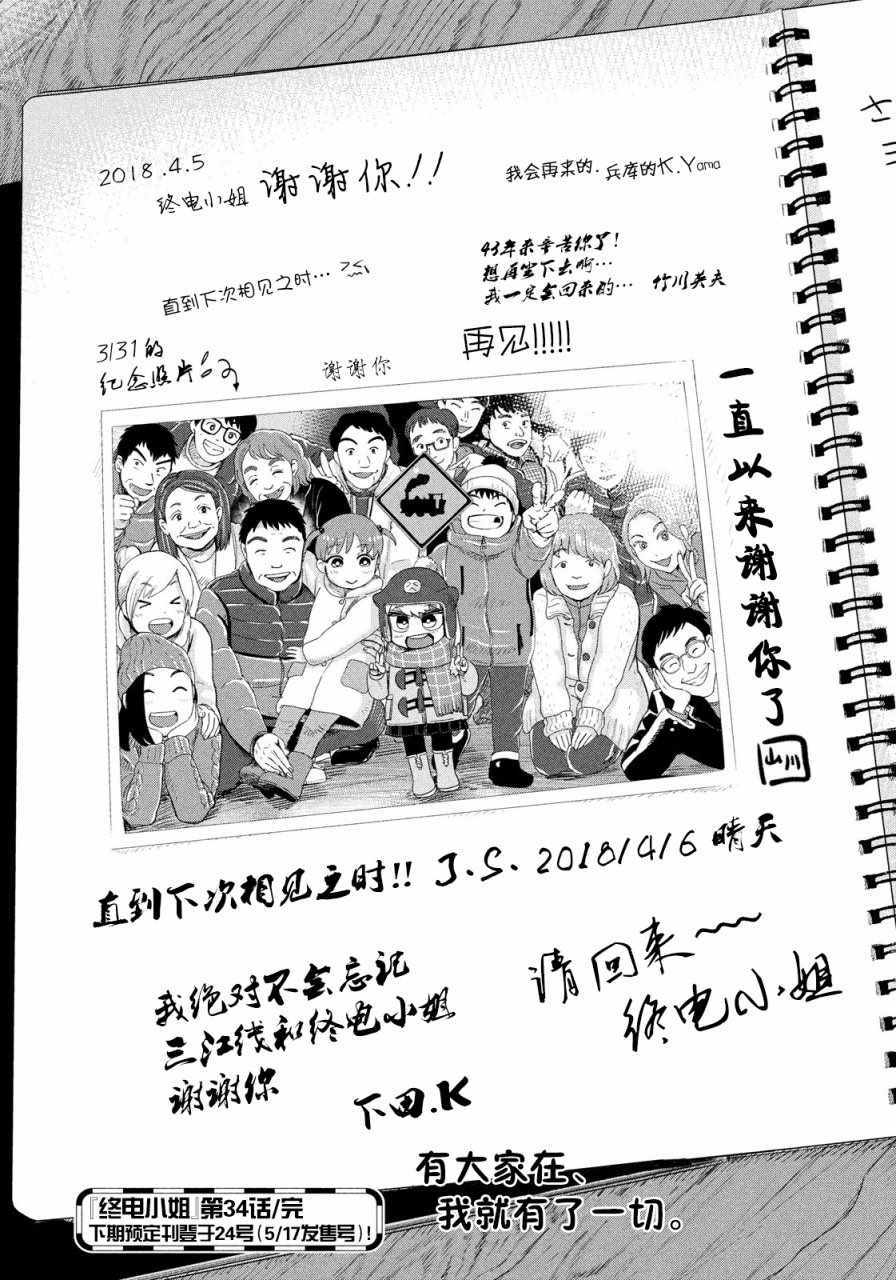 2018.4.5
终电小姐 谢谢你!!
我会再来的. 兵库的K.Yama
43年来辛苦你了!
想再坐下去啊…
我一定会回来的… 竹川英夫
直到下次相见之时…
再见!!!!!
3/31的
纪念照片
谢谢你
一直以来谢谢你了
山川
直到下次相见之时!! J.S. 2018/4/6 晴天
我绝对不会忘记
三江线和终电小姐
谢谢你
下田.K
请回来~~
终电小姐
有大家在、
我就有了一切。
『终电小姐』第34话/完
下期预定刊登于24号(5/17发售号)!